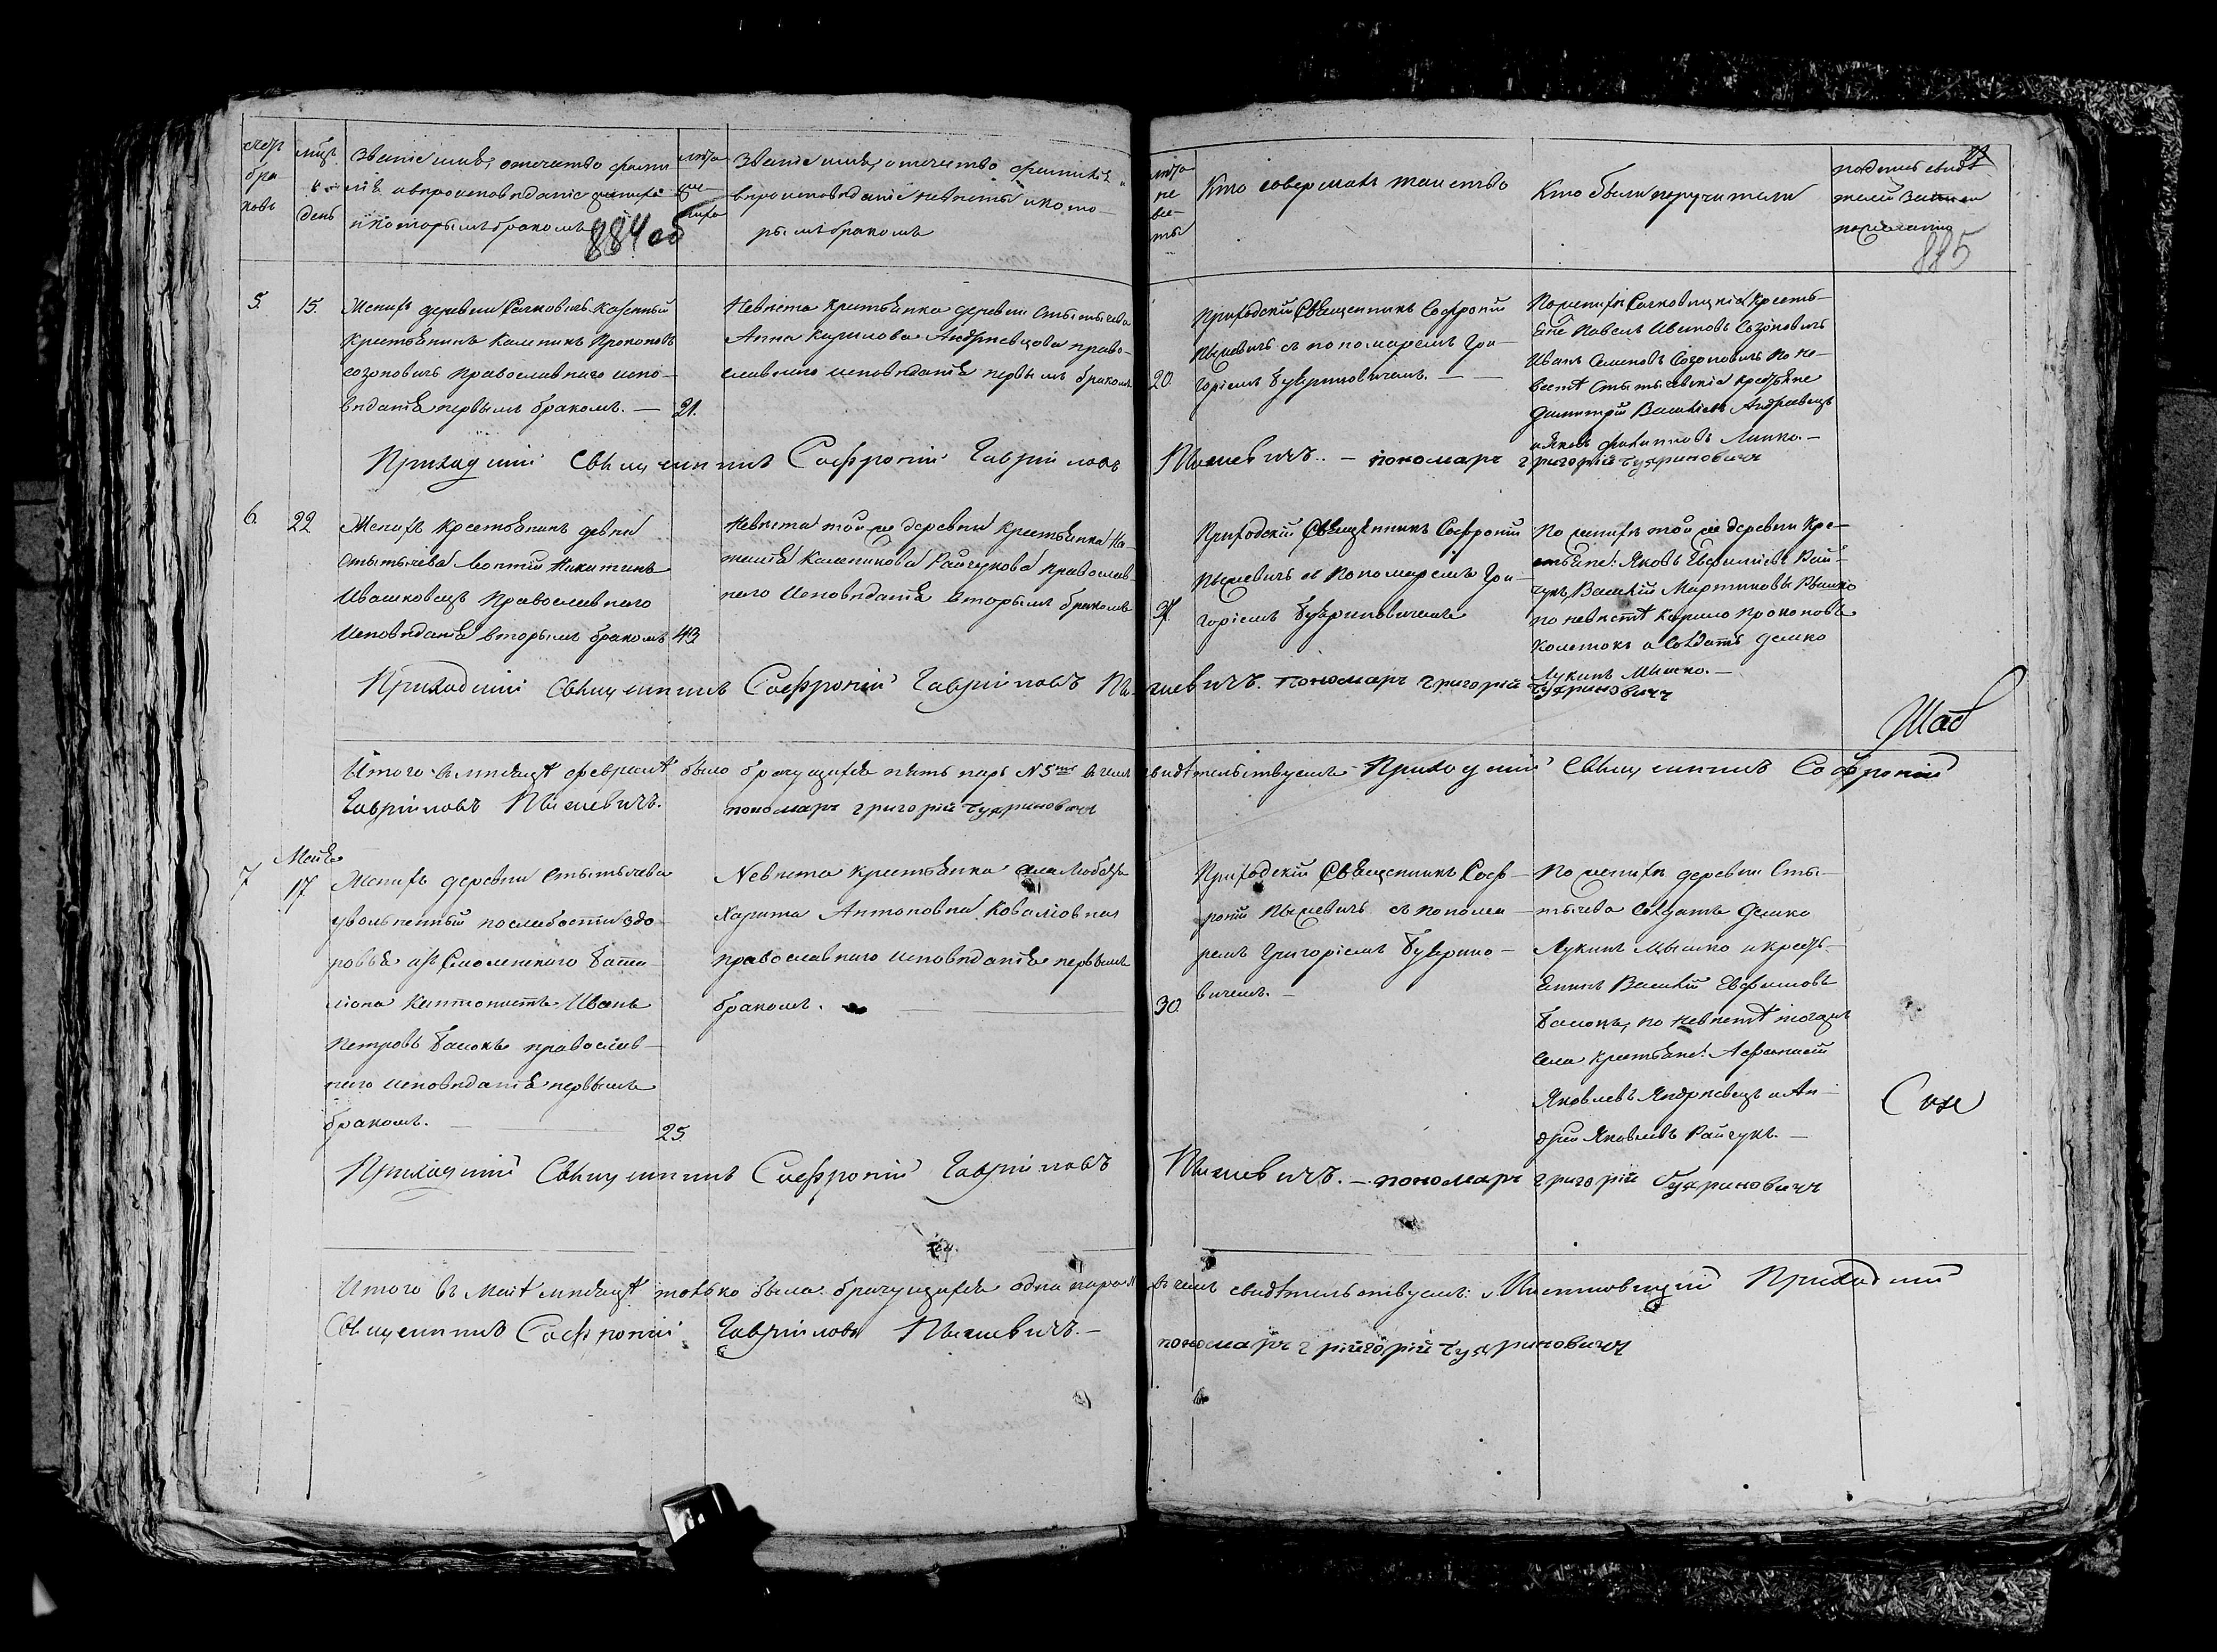 счет бра ковъ
мѣсяц и день
Званіе имя, отечество фами
лія и вѣроисповѣданіе жениха
и которымъ бракомъ
884 об
лѣта же ниха
Званіе имя, отечество фамилія и
вѣроисповѣданіе невѣсты и кото-
рымъ бракомъ
лѣта не вѣ- сты
Кто совершалъ таинство
Кто были поручители
подпись свидѣ
телей записи
по желанію
885
5.
15.
Женихъ деревни Сачковичъ Казенный
крестьянинъ Калиникъ Прокоповъ
Созоновичъ православнаго испо-
вѣданія первымъ бракомъ. —
21.
Невѣста крестьянка деревни Стытычева
Анна Кирилова Андріевцова право-
славнаго исповѣданія первымъ бракомъ
20.
Приходскій Священникъ Софроній
Пыжевичъ съ пономаремъ Гри-
горіемъ Букриновичемъ. — —
По женихѣ Сачковицкія Кресть-
яне Павелъ Ивановъ Созоновичъ
Иванъ Семеновъ Созоновичъ По не-
вестѣ Стытычевскія крестьяне
Димитрій Василіевъ Андріевецъ
и Яковъ Филиповъ —
Приходскій Священникъ Софроній Гавріиловъ Пыжевичъ. — пономарь григорій букриновичъ
6.
22
Женихъ Крестьянинъ девни
Стытычева Леонтій Никитинъ
Ивашковецъ Православнаго
Исповѣданія вторымъ бракомъ
43
Невѣста той же деревни Крестьянка На-
талія Калиникова Райчукова Православ-
наго Исповѣданія вторымъ бракомъ
37.
Приходскій Священникъ Софроній
Пыжевичъ съ Пономаремъ Гри-
горіемъ Букриновичемъ
По женихѣ той же деревни Кре-
стьяне: Яковъ Евфиміевъ Рай-
чукъ, Василій Мартиновъ
по невѣстѣ Кирило Прокоповъ
и Солдатъ Демко
Лукинъ Мышко. —
Приходскій Священникъ Софроній Гавріиловъ Пыжевичъ. пономарь григорій букриновичъ
Шав
Итого въ мѣсяцѣ февралѣ было брачущихся пять паръ N 5 въ чемъ свидѣтельствуемъ Приходскій Священникъ Софроній
Гавріиловъ Пыжевичъ. пономарь григорій букриновичъ
7
Мая
17
Женихъ деревни Стытычева
уволенный по слабости здо-
ровья изъ Смоленскаго бата-
ліона Кантонистъ Иванъ
Петровъ православ-
наго исповѣданія первымъ
бракомъ. —
25.
Невѣста крестьянка села Любашы
Харита Антоновна Коваліовная
православнаго исповѣданія первымъ
бракомъ.
30.
Приходскій Священникъ Соф-
роній Пыжевичъ съ понома-
ремъ Григоріемъ Букрино-
вичемъ. —
По женихѣ деревни Сты-
тычева Солдатъ Демко
Лукинъ Мышко и крест-
янинъ Василій Евфимовъ
по невѣстѣ тогожъ
села крестьяне: Афанасій
Яковлевъ Андріевецъ и Ан-
дрей Яковлевъ Райчукъ. —
Приходскій Священникъ Софроній Гавріиловъ Пыжевичъ. — пономарь григорій букриновичъ
Итого въ Маѣ мѣсяцѣ только была брачущихся одна пара въ чемъ свидѣтельствуемъ: Приходскій
Священникъ Софроній Гавріиловъ Пыжевичъ. — пономарь григорій букриновичъ